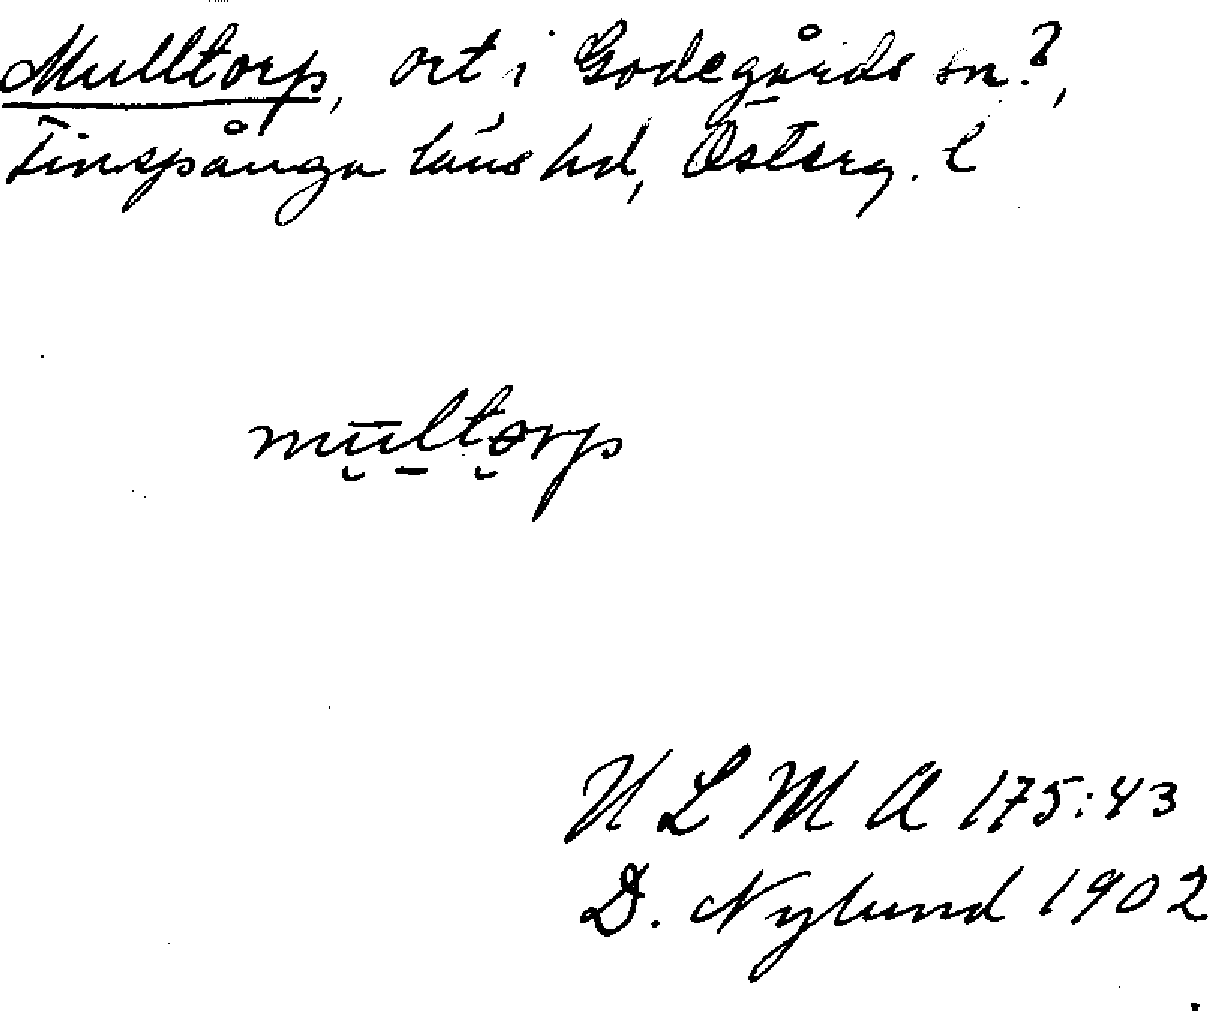 Mulltorp, ort i Godegårds sn?,
Finspånga läns hd, Österg. l
multorp
ULMA 175:43
D. Nylund 1902